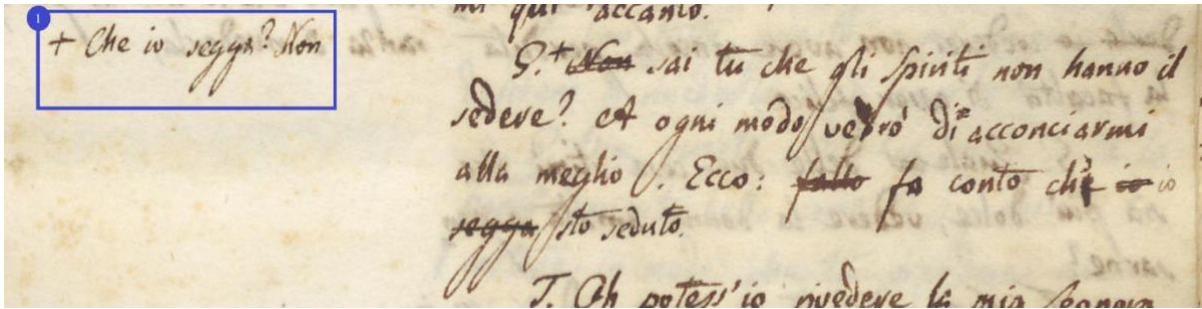 mi qui accanto.
+ Che io segga? Non
G.+ Non sai tu che gli Spiriti non hanno il
sedere? A ogni modo vedrò di acconciarmi
alla meglio. Ecco: fallo fa conto ch' io io
segga sto seduto.
T. Oh potess'io rivedere la mia